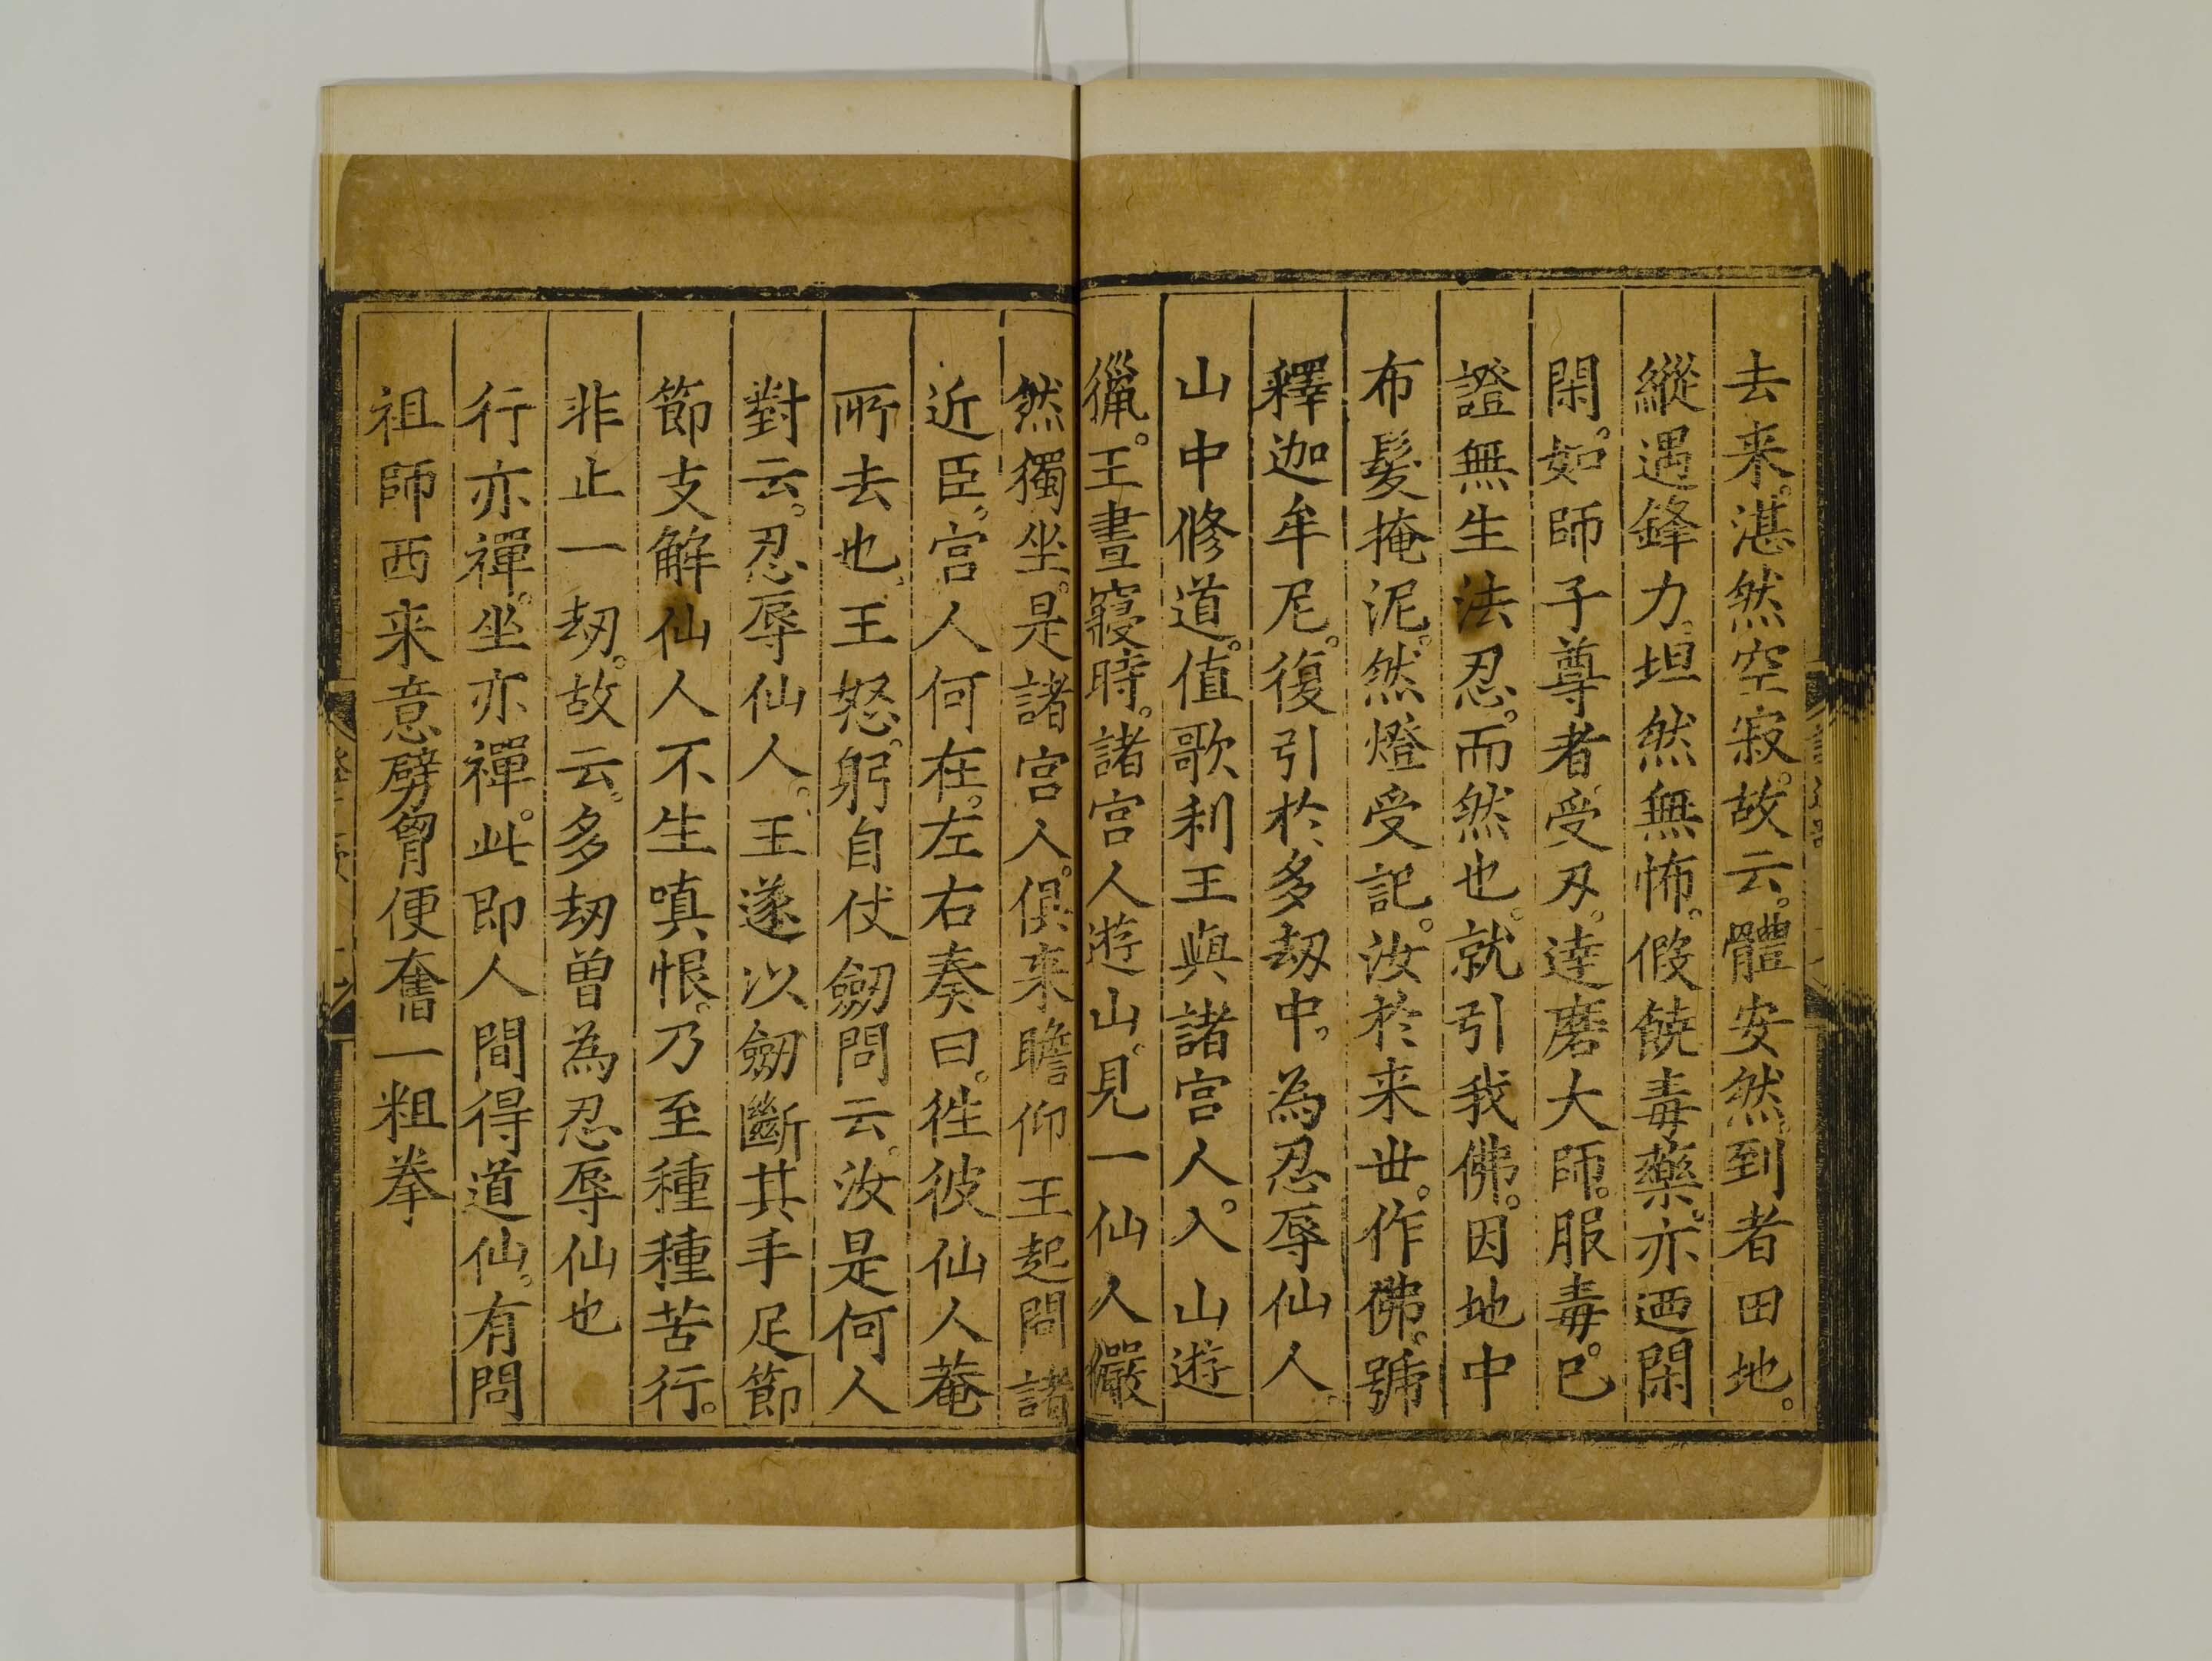 去来湛然空寂。故云。體安然到者田地。
縱遇鋒力。坦然無怖。假饒毒藥。亦迺閑
閑。如師子尊者受刄。達磨大師。服毒。已
證無生法忍。而然也。就引我佛。因地中
布髮掩泥。然燈受記。汝於来世。作佛。號
釋迦牟尼。復引於多刼中。為忍辱仙人。
山中修道。值歌利王與諸宮人。入山遊
獵。王晝寢時。諸宮人遊山。見一仙人儼
然獨坐。是諸宮人。俱来瞻仰王起問諸
近臣。宮人何在。左右奏曰。徃彼仙人菴
所去也。王怒。躬自仗劒問云。汝是何人
對云。忍辱仙人。王遂以劒斷其手足節
節支解仙人不生嗔恨。乃至種種苦行。
非止一刼。故云。多刼曾為忍辱仙也
行亦禪。坐亦禪。此即人間得道仙。有問
祖師西来意劈胷便奮一粗拳